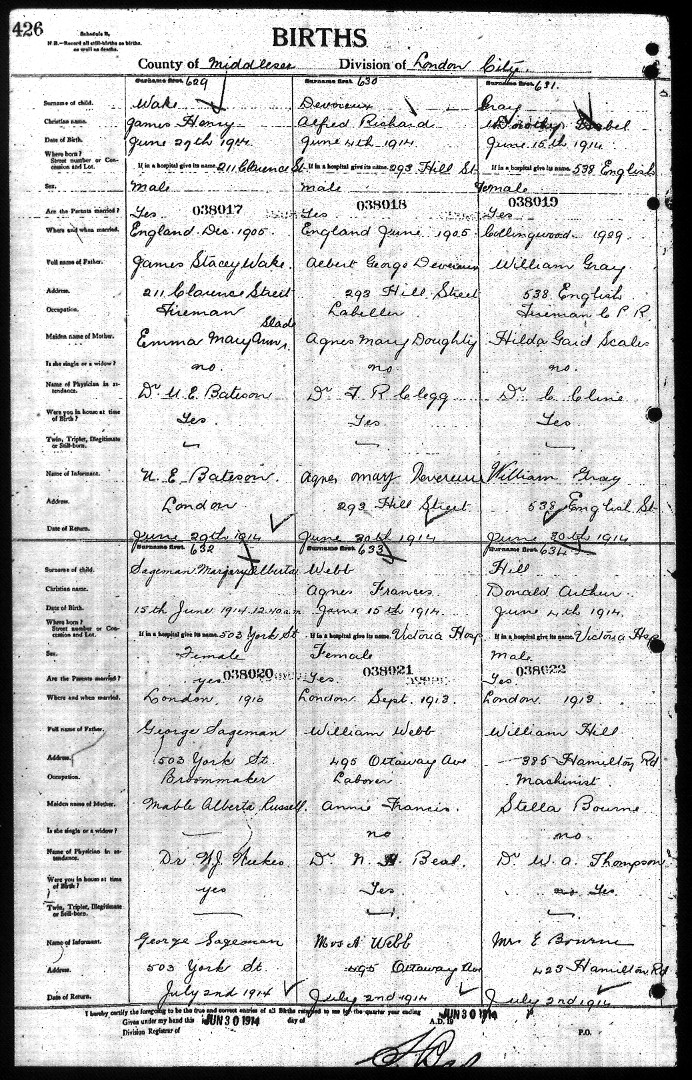 426
Schedule B.
N.B.—Record all still-births as births, as well as deaths.
BIRTHS
County of Middlesex Division of London City.
Surname first. 629 Surname first. 630 Surname first. 631.
Surname of child. Wake Devereux Gray
Christian name. James Henry Alfred Richard Dorothy Isabel
Date of Birth. June 29th 1914 June 4th 1914 June 15th 1914
Where born? Street number or Concession and Lot. If in a hospital give its name. 211 Clarence St If in a hospital give its name. 293 Hill St If in a hospital give its name. 538 English
Sex. Male Male Female
Are the Parents married? Yes 038017 Yes 038018 Yes 038019
Where and when married. England Dec. 1905 England June 1905 Collingwood 1909
Full name of Father. James Stacey Wake. Albert George Devereux William Gray
Address. 211 Clarence Street 293 Hill Street 538 English
Occupation. Fireman Labeller Fireman C P R.
Maiden name of Mother. Emma Mary Ann Slade Agnes Mary Doughty Hilda Gaid Scales
Is she single or a widow? no. no. no.
Name of Physician in attendance. Dr U. E. Bateson Dr F R Clegg Dr C Cline
Were you in house at time of Birth? Yes. Yes Yes
Twin, Triplet, Illegitimate or Still-born. — — —
Name of Informant. U. E. Bateson. Agnes May Devereux William Gray
Address. London 293 Hill Street 538 English St
Date of Return. June 29th 1914 June 30th 1914 June 30th 1914
Surname first. 632 Surname first. 633 Surname first. 634
Surname of child. Sageman Margary Alberta Webb Hill
Christian name. Agnes Francis Donald Arthur
Date of Birth. 15th June 1914 12.40 a.m June 15th 1914. June 4th 1914
Where born? Street number or Concession and Lot. If in a hospital give its name. 503 York St If in a hospital give its name. Victoria Hosp. If in a hospital give its name. Victoria Hsp
Sex. Female Female Male
Are the Parents married? yes 038020 Yes. 038021 Yes. 038022
Where and when married. London, 1910 London Sept. 1913. London 1913.
Full name of Father. George Sageman William Webb William Hill
Address. 503 York St. 495 Ottaway Ave 385 Hamilton Rd
Occupation. Broommaker Laborer Machinist.
Maiden name of Mother. Mable Alberta Russell. Annie Francis. Stella Bourne
Is she single or a widow? — no no.
Name of Physician in attendance. Dr W.J. Weekes Dr N. H Beal. Dr W. A. Thompson
Were you in house at time of Birth? yes Yes no Yes.
Twin, Triplet, Illegitimate or Still-born. — — —
Name of Informant. George Sageman Mrs A Webb Mrs E Bourne
Address. 503 York St. 495 Ottaway Ave 423 Hamilton Rd
Date of Return. July 2nd 1914 July 2nd 1914 July 2nd 1914
I hereby certify the foregoing to be the true and correct entries of all Births returned to me for the quarter year ending JUN 30 1914
Given under my hand this JUN 30 1914 day of A.D. 19
Division Registrar of P.O.